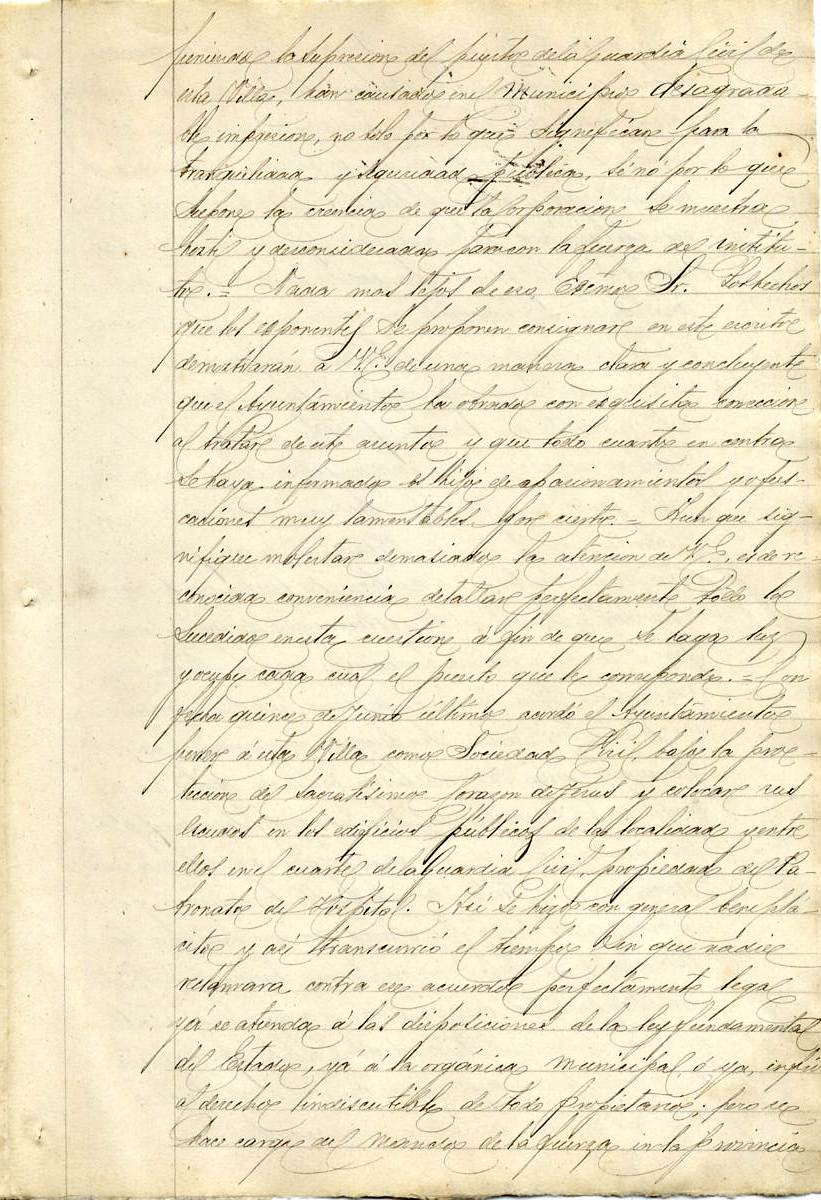 poniendo la supresion del puesto de la Guardia Civil de
esta Villa, han causado en el Municipio desagrada-
ble impresion, no sólo por lo que significan para la
tranquilidad y seguridad pública, sinó por lo que
supone la creencia de que la Corporacion se muestra
hostil y desconsiderada para con la fuerza del institu-
to. = Nada mas lejos de eso, Excmo Sr. Los hechos
que los exponentes se proponen consignar en este escrito
demostrarán á V.E. de una manera clara y concluyente
que el Ayuntamiento ha obrado con exquisita correccion
al tratar de este asunto y que todo cuanto en contra
se haya informado es hijo de apasionamientos y ofus-
caciones muy lamentables por cierto. = Aun que sig-
nifique molestar demasiado la atencion de V.E., es de re-
conocida conveniencia detallar perfectamente todo lo
sucedido en esta cuestion á fin de que se haga luz
y ocupe cada cual el puesto que le corresponda. = Con
fecha quince de Junio último acordó el Ayuntamiento
poner á esta Villa como Sociedad Civil, bajo la pro-
teccion del Sacratisimo Corazon de Jesus y colocar sus
escudos en los edificios públicos de la localidad y entre
ellos en el cuartel de la Guardia Civil, propiedad del Pa-
tronato del Hospital. Asi se hizo con general beneplá-
cito y asi transcurrió el tiempo sin que nadie
reclamara contra ese acuerdo perfectamente legal
yá se atienda á las disposiciones de la ley fundamental
del Estado, yá á la orgánica municipal ó ya,
al derecho indiscutible de todo propietario; pero se
hace cargo del mando de la fuerza en la provincia